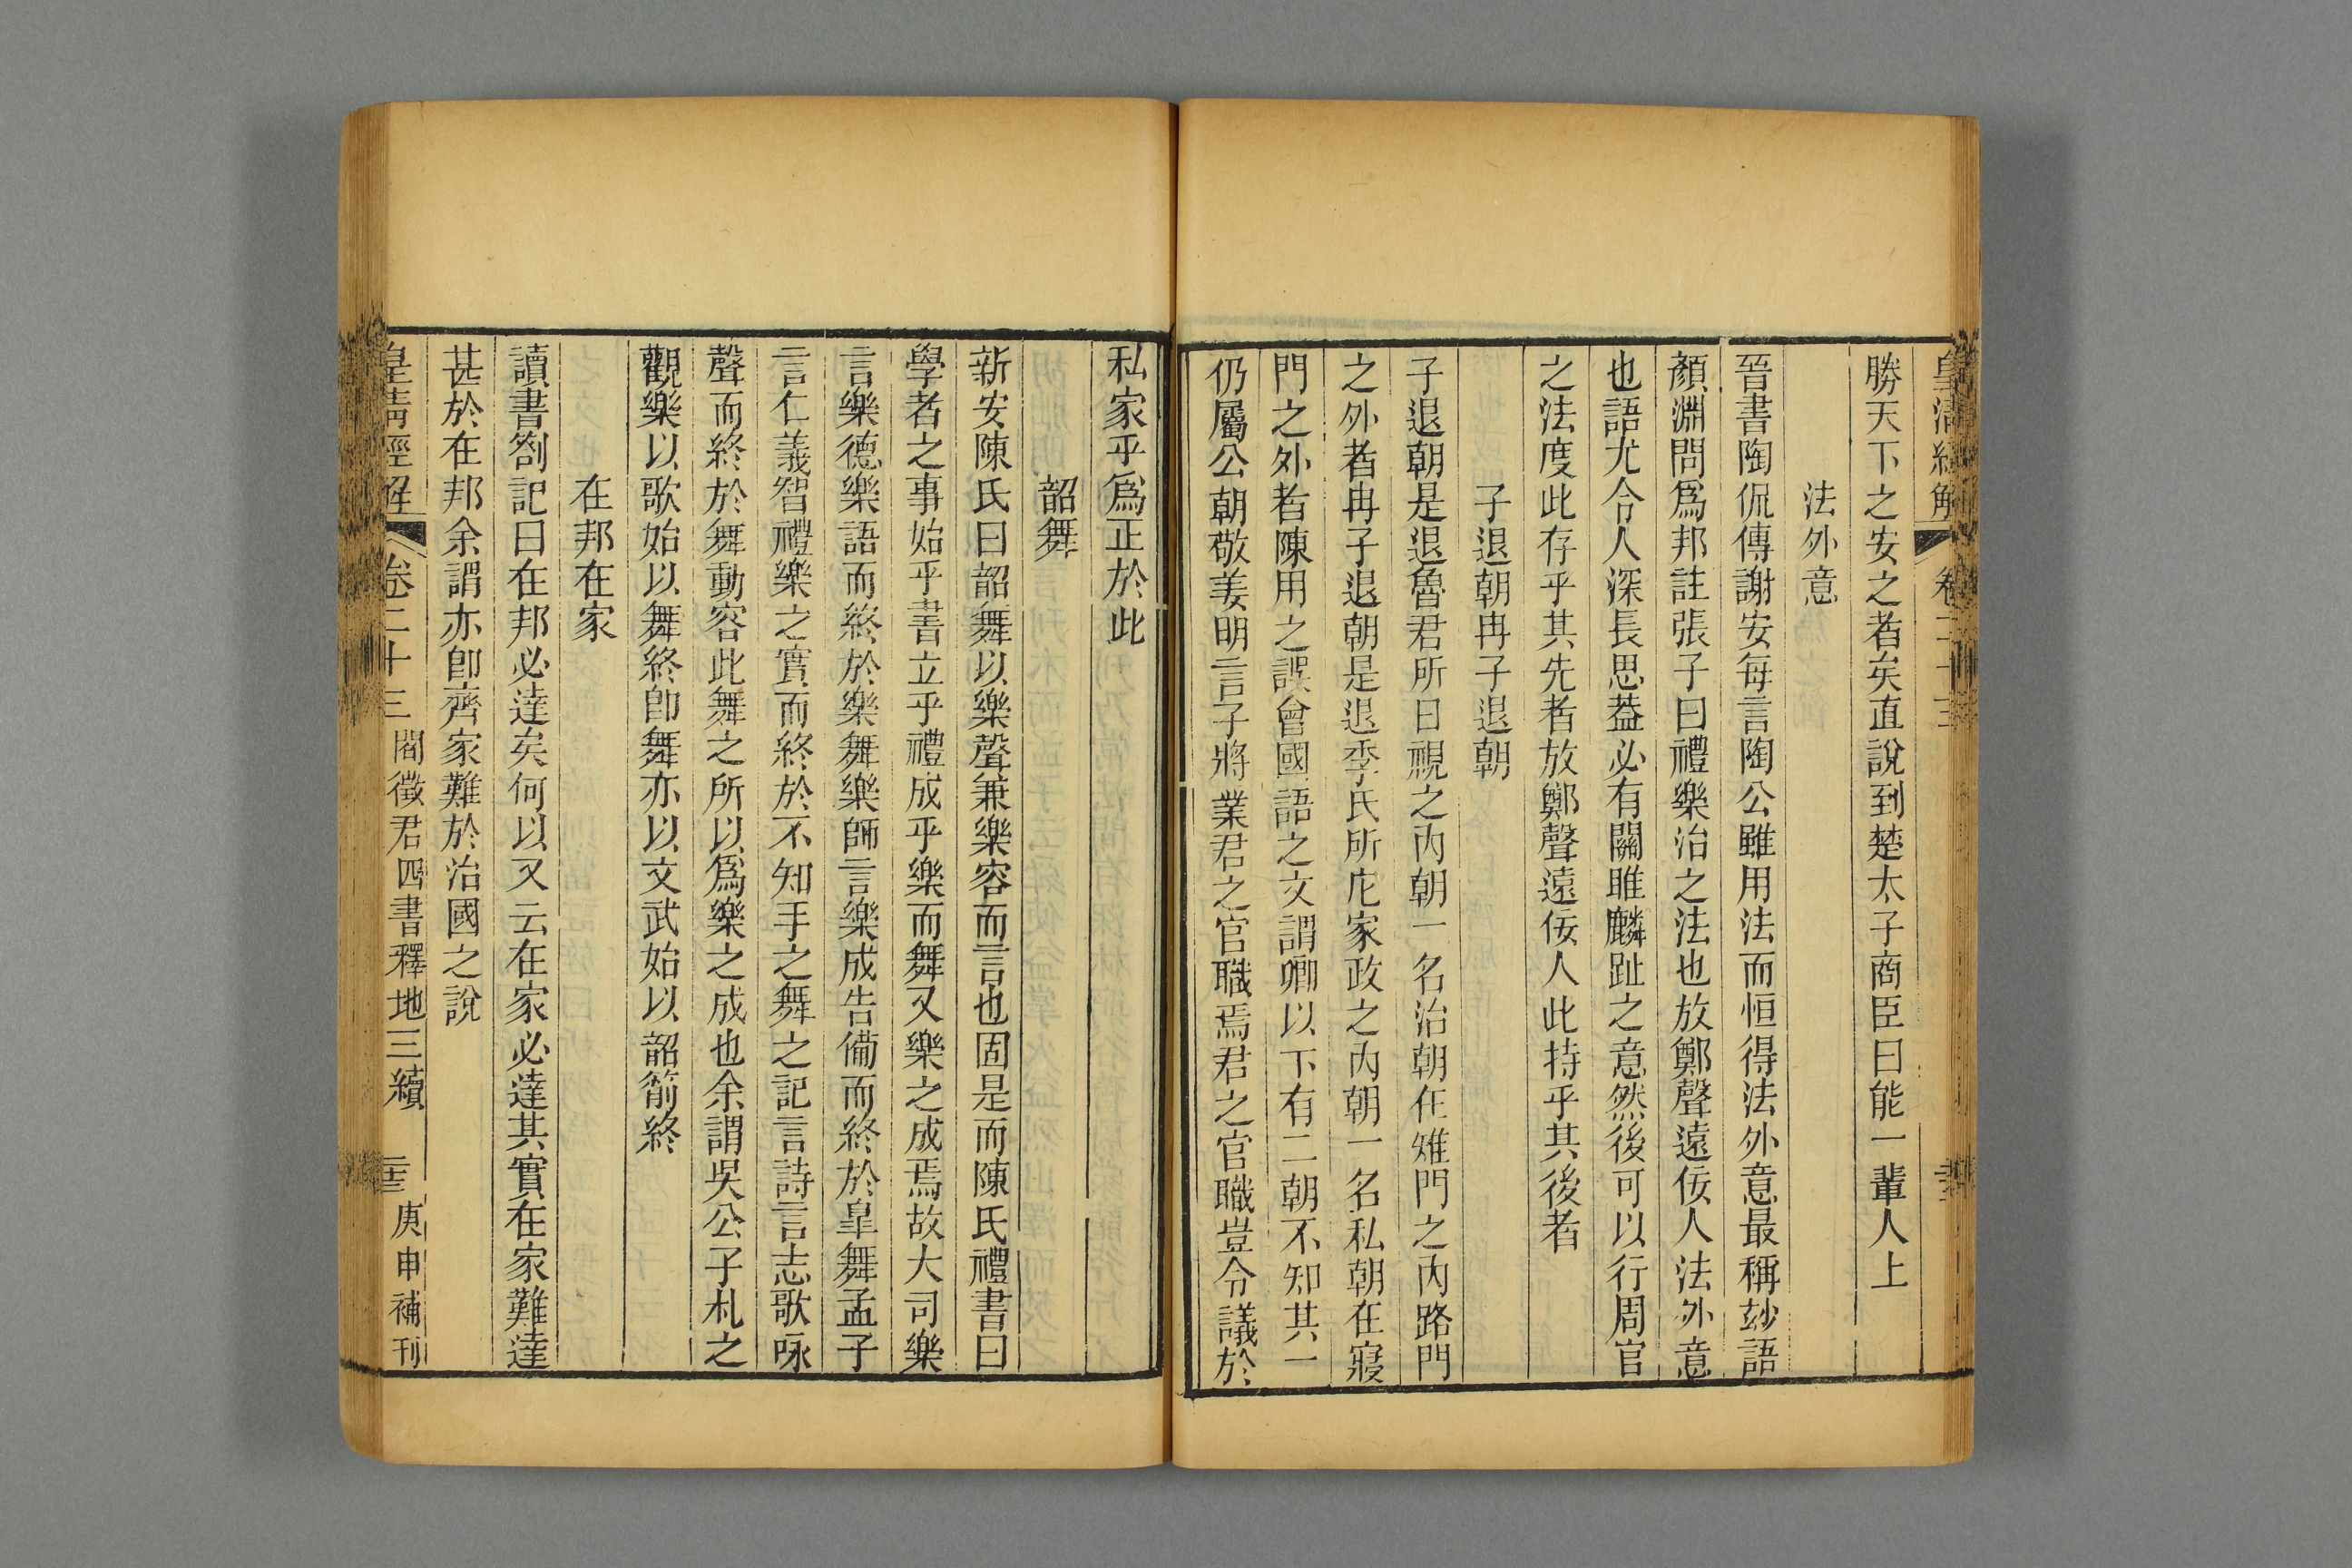 皇清經解
卷二十三
勝天下之安之者矣直說到楚太子商臣曰能一輩人上
法外意
晉書陶侃傳謝安每言陶公雖用法而恒得法外意最稱玅語
顏淵問爲邦註張子曰禮樂治之法也放鄭聲遠佞人法外意
也語尤合人深長思葢必有關雎麟趾之意然後可以行周官
之法度此存乎其先者放鄭聲遠佞人此持乎其後者
子退朝冉子退朝
子退朝是退魯君所日視之內朝一名治朝在雉門之內路門
之外者冉子退朝是退季氏所庀家政之內朝一名私朝在寢
門之外者陳用之誤會國語之文謂卿以下有二朝不知其一
仍屬公朝敬姜明言子將業君之官職焉君之官職豈令議於
私家乎爲正於此
韶舞
新安陳氏曰韶舞以樂聲兼樂容而言也固是而陳氏禮書曰
學者之事始乎書立乎禮成乎樂而舞又樂之成焉故大司樂
言樂德樂語而終於樂舞樂師言樂成告備而終於皐舞孟子
言仁義智禮樂之實而終於不知手之舞之記言詩言志歌咏
聲而終於舞動容此舞之所以爲樂之成也余謂吳公子札之
觀樂以歌始以舞終卽舞亦以文武始以韶箾終
在邦在家
讀書劄記曰在邦必達矣何以又云在家必達其實在家難達
甚於在邦余謂亦卽齊家難於治國之說
皇清經解
卷二十三
閻徵君四書釋地三續
庚申補刊